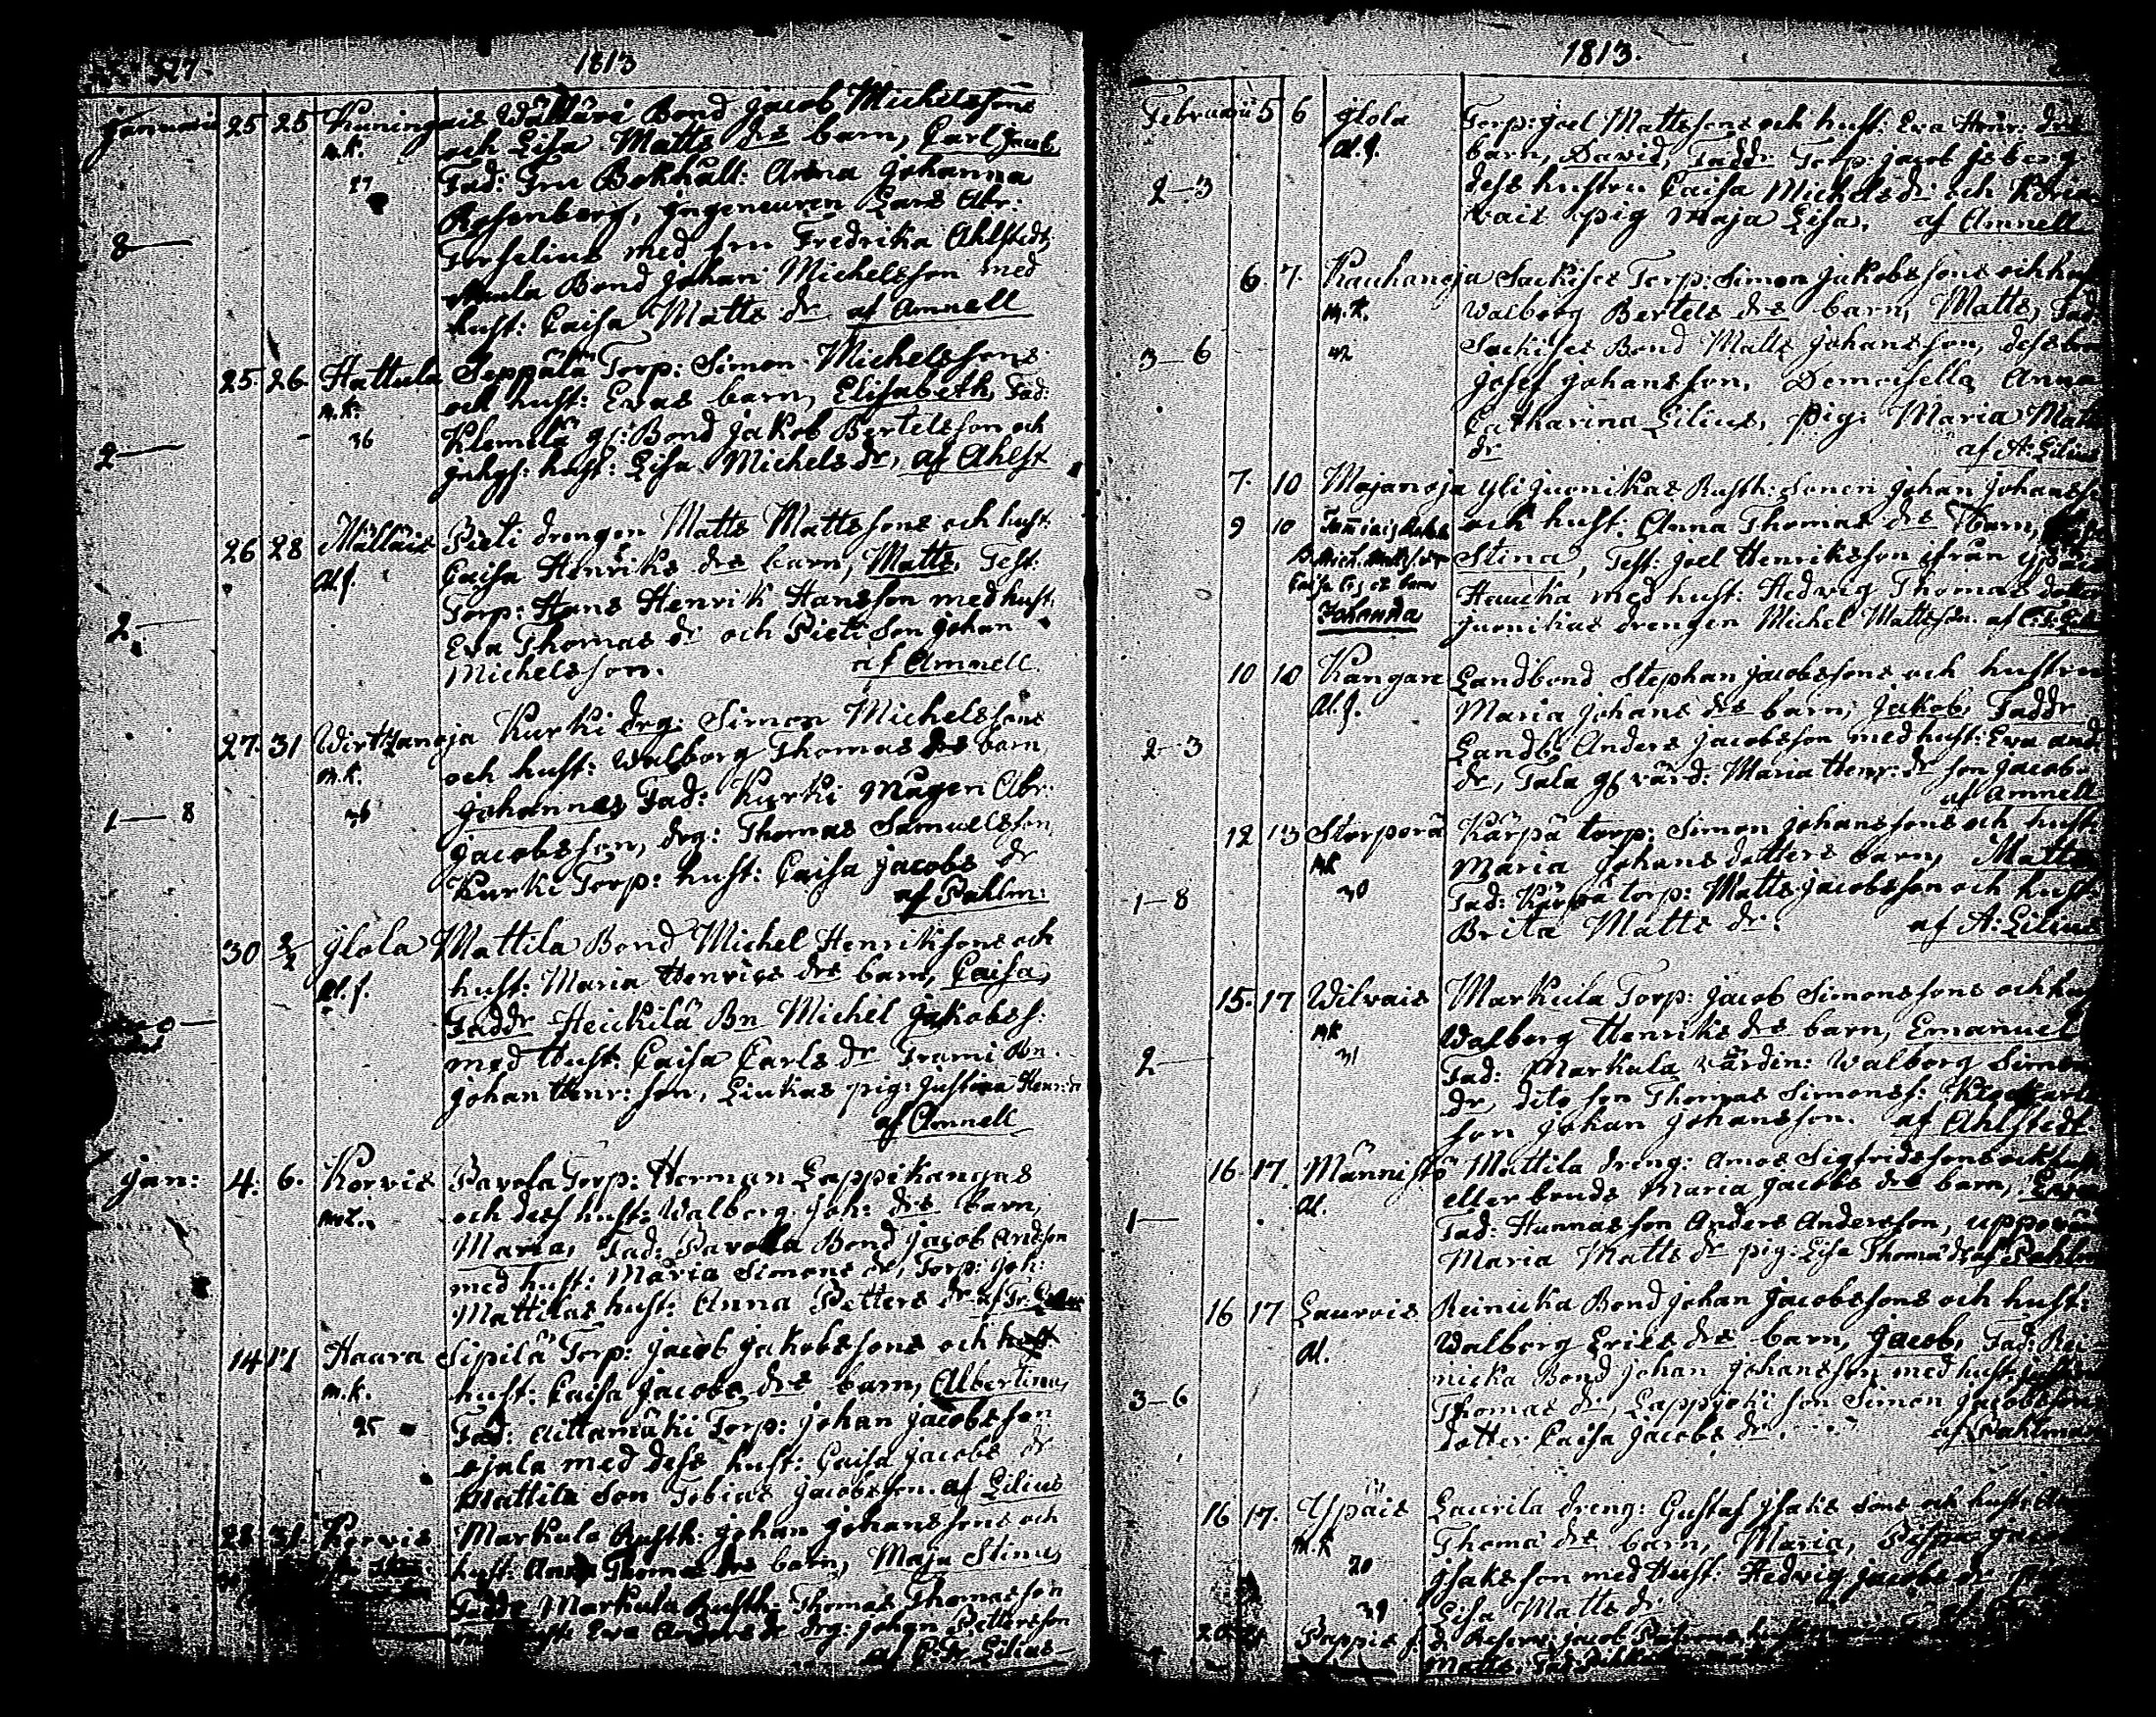 1813
Januari 25 25 Kuningais Wälläri Bond Jacob Michelssons
m.k. och Lisa Matts drs barn, Carl Jacob
27 Fad: Fru Bokhåll: Anna Johanna
Rosenberg, Ingeneuren Lars Abr:
8 — Forselius med fru Fredrika Ahlstedt
Bond Johan Michelsson med
hust: Caisa Matts dr af Amnell
25. 26. Hattula Seppälä Torp: Simon Michelssons
m.k. och hust: Evas barn, Elisabeth, Fad:
36 Klemelä gs: Bond Jakob Bertelsson och
2 — Inhys: hust: Lisa Michels dr, af Ahlst
26 28 Mälläis Pieti drengen Matts Mattssons och hust
Al.f. Caisa Henriks drs barn, Matts, Test:
Torp: Hans Henrik Hansson med hust
2. — Eva Thomas dr och Pieti Son Johan
Michelsson. af Amnell
27. 31 Wirtzanoja Kurki drg: Simon Michelssons
m.k. och hust: Walborg Thomas drs barn
36 Johannes Fad: Kurki mågen Abr:
1 — 8 Jacobsson, drg: Thomas Samuelsson
Kurki Torp: hust: Caisa Jacobs dr
af Pahlm:
30 2/2 Jlola Mattila Bond Michel Henrikssons och
Al.f. hust: Maria Henrics drs barn, Caisa,
Faddr Heickilä Bn Michel Jakobss.
med Hust: Caisa Carls dr Trami Bn.
Johan Henr: son, Liukas pig: Justina Henr: dr
af Amnell
Jan: 4. 6. Korvis Pavola Torp: Herman Lappikangas
och dess hust: Walborg Joh: drs barn,
Maria, Fad: Pavola Bond Jacob Andsson
med hust: Maria Simons dr, Torp: Joh:
Mattilas hust: Anna Petters dr af Fr.
14 17 Haara Sipilä Torp: Jacob Jakobssons och
m.k. hust: Caisa Jacobs drs barn, Albertina,
25 Fad: Aittamäki Torp: Johan Jacobsson
Ojala med dess hust: Caisa Jacobs dr
Mattila Son Tobias Jacobsson. af Lilius
28 31 Korvis Markula Rusth: Johan Johanssons och
hust: Anna Thomas drs barn, Maja Stina,
Faddr Markula Rusth: Thomas Thomasson
Eva Anders dr drg: Johan Pettersson
af Lilius
1813.
Februari 5 6 Jlola Torp: Joel Mattssons och hust: Eva Henr: drs
Al.f. barn, David, Faddr Torp: Jacob Jsberg
2 — 3 dess hustru Caisa Michels dr och
pig Maja Lisa. af Amnell
6. 7. Kauhanoja Sackises Torp: Simon Jakobssons och
m.k. Walborg Bertels drs barn, Matts, Fad:
3 — 6 42 Sackises Bond Matts Johansson, dess
Josef Johansson, Demoiselle Anna
Catharina Lilius, pig: Maria Matts
dr af A: Lilius
7. 10 Majanoja Yli Juonikas Rusth: Sonen Johan
9 10 och hust: Anna Thomas drs barn,
Stina, Test: Joel Henriksson ifrån
Haucka med hust: Hedvig Thomas dotter
Johanna Juonikas drengen Michel Mattsson. af
10 10 Kangare Landbond Stephan Jacobssons och hustru
Al.f. Maria Johans drs barn, Jakob, Faddr
2 — 3 Landb Anders Jacobsson med hust: Eva And
dr, Tala gs värd: Maria Henr: dr son Jacob
af Amnell
12 13 Storperä Kärpä torp: Simon Johanssons och hust
mk Maria Johans dotters barn, Matts
1 — 8 30 Fad: Kärpä torp: Matts Jacobsson och hust
Brita Matts dr. af A: Lilius
15. 17 Wilvais Markula Torp: Jacob Simonssons och
mk Walborg Henriks drs barn, Emanuel
2 — 31 Fad: Markula värdin: Walborg Simons
dr, dito son Thomas Simonss:
son Johan Johansson. af Ahlstedt.
16. 17. Männistö Mattila dreng: Amos Sigfridssons och
Al. eller bruds Maria Jacobs drs barn,
1 — Fad: Hunnas son Anders Andersson,
Maria Matts dr pig: Lisa Thoma dr af Pahlm
16 17 Laurois Reinicka Bond Johan Jacobssons och hust:
Al. Walborg Erics drs barn, Jacob, Fad: Rei-
nicka Bond Johan Johansson med hust:
3 — 6 Thomas dr, Lappjoki son Simon Jacobsson
dotter Caisa Jacobs dr. af Pahlman
16 17. Ypäis Laurila dreng: Gustaf Jsaks sons och hust:
m.k Thoma drs barn, Maria,
20 Jsaksson med Hust: Hedvig Jacobs dr
39 Lisa Matts dr.
Pappis
Matts,